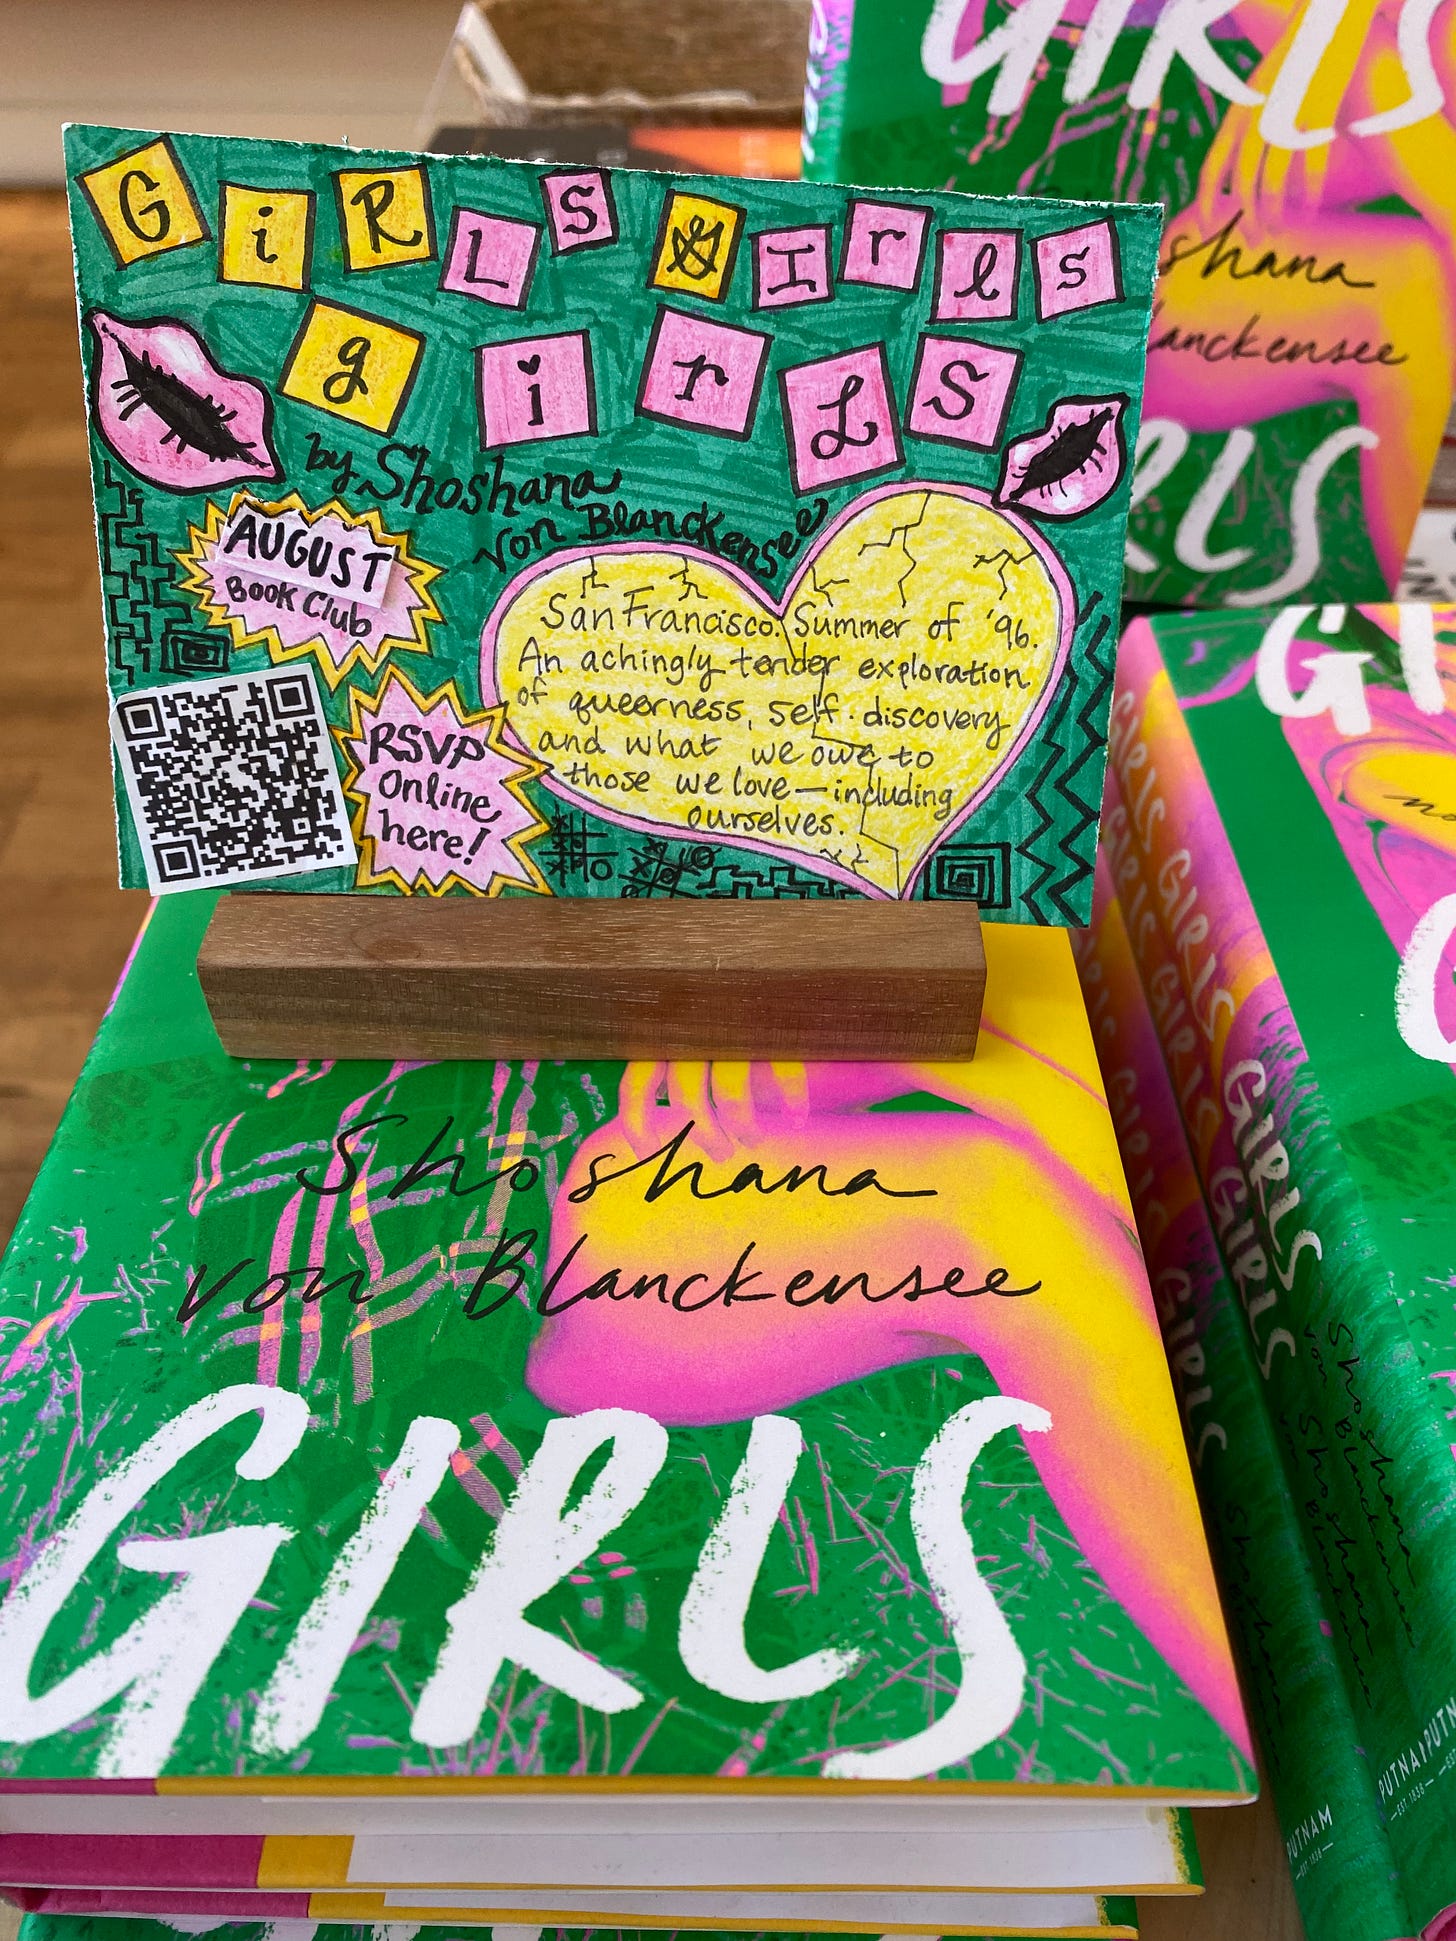 GiRLS GIrls
girLS
by Shoshana
von Blanckensee
AUGUST
Book Club
RSVP
Online
here!
San Francisco. Summer of '96.
An achingly tender exploration
of queerness, self-discovery
and what we owe to
those we love—including
ourselves.
Shoshana
von Blanckensee
GIRLS
GIRLS
shana
lanckensee
RLS
GIRLS GIRLS GIRLS
GIRLS GIRLS GIRLS
Shoshana
von Blanckensee
Shoshana
von Blanckensee
PUTNAM
EST. 1838
PUTNAM
EST. 1838
PUTN